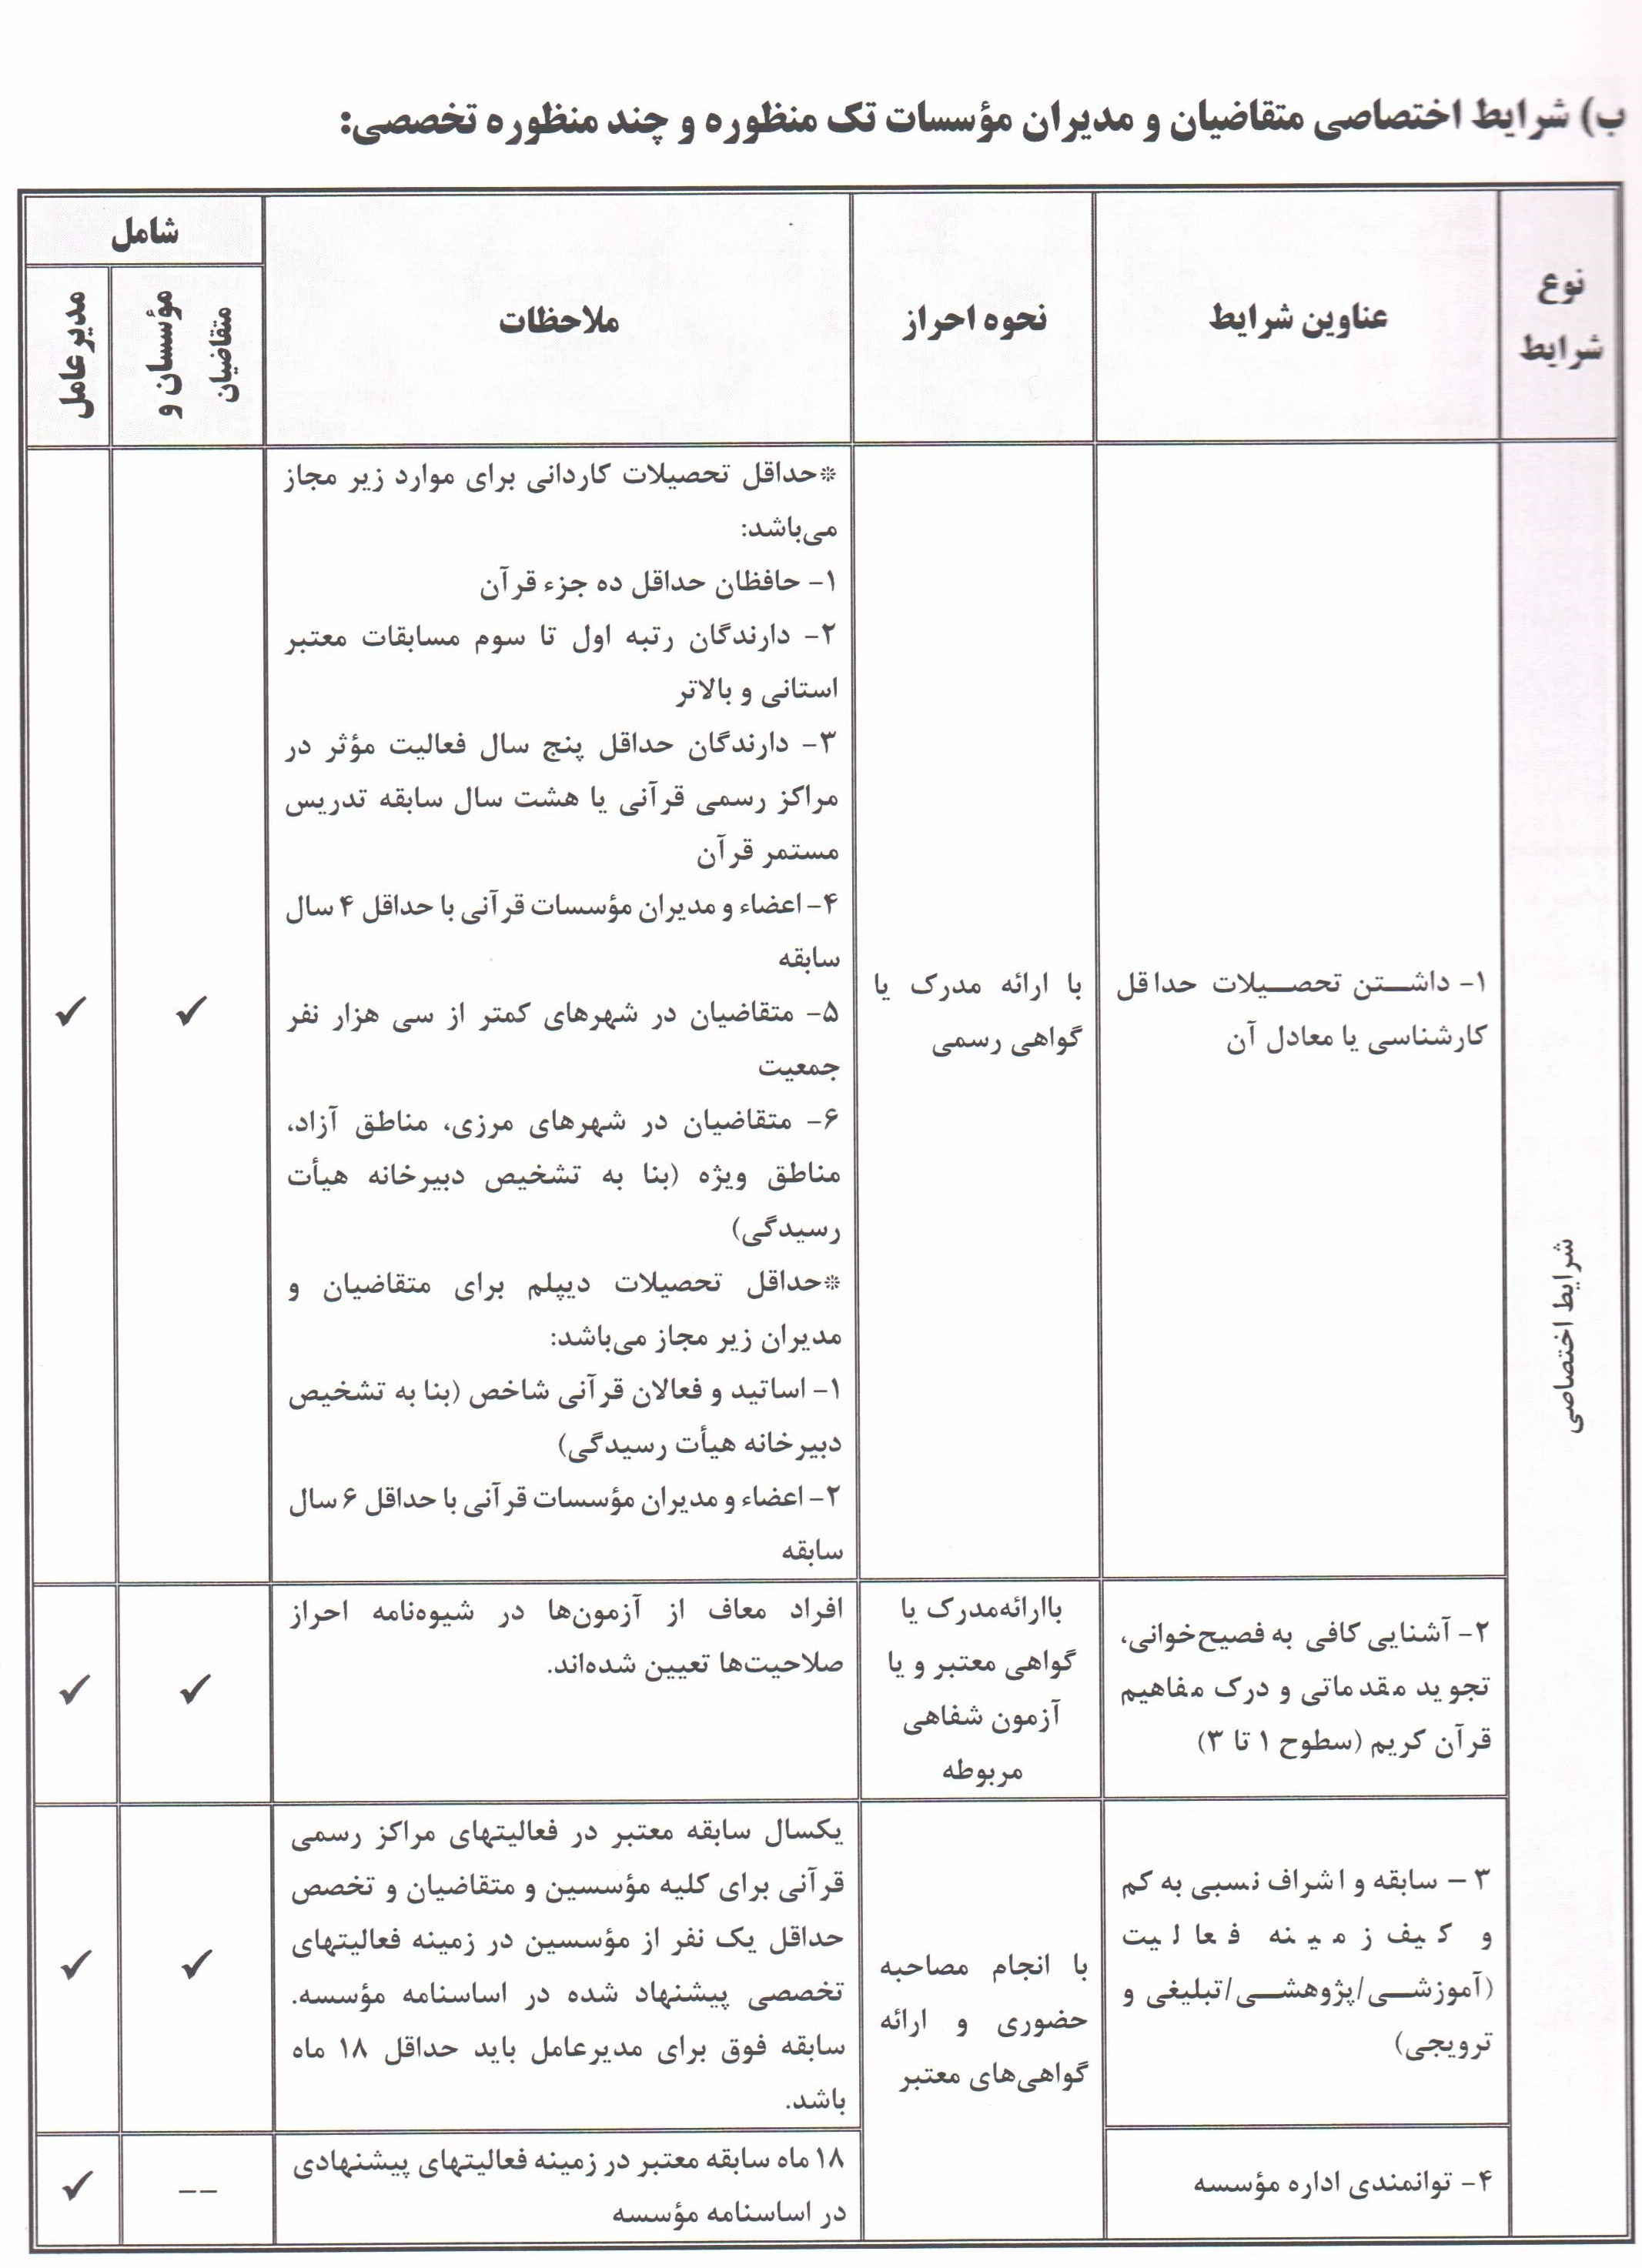 ب) شرایط اختصاصی متقاضیان و مدیران مؤسسات تک منظوره و چند منظوره تخصصی:
نوع
شرایط
عناوین شرایط
نحوه احراز
ملاحظات
شامل
مؤسسان و
متقاضیان
مدیرعامل
شرایط اختصاصی
۱- داشتن تحصیلات حداقل
کارشناسی یا معادل آن
با ارائه مدرک یا
گواهی رسمی
*حداقل تحصیلات کاردانی برای موارد زیر مجاز
می‌باشد:
۱- حافظان حداقل ده جزء قرآن
۲- دارندگان رتبه اول تا سوم مسابقات معتبر
استانی و بالاتر
۳- دارندگان حداقل پنج سال فعالیت مؤثر در
مراکز رسمی قرآنی یا هشت سال سابقه تدریس
مستمر قرآن
۴- اعضاء و مدیران مؤسسات قرآنی با حداقل ۴ سال
سابقه
۵- متقاضیان در شهرهای کمتر از سی هزار نفر
جمعیت
۶- متقاضیان در شهرهای مرزی، مناطق آزاد،
مناطق ویژه (بنا به تشخیص دبیرخانه هیأت
رسیدگی)
*حداقل تحصیلات دیپلم برای متقاضیان و
مدیران زیر مجاز می‌باشد:
۱- اساتید و فعالان قرآنی شاخص (بنا به تشخیص
دبیرخانه هیأت رسیدگی)
۲- اعضاء و مدیران مؤسسات قرآنی با حداقل ۶ سال
سابقه
✓
✓
۲- آشنایی کافی به فصیح‌خوانی،
تجوید مقدماتی و درک مفاهیم
قرآن کریم (سطوح ۱ تا ۳)
باارائه‌مدرک یا
گواهی معتبر و یا
آزمون شفاهی
مربوطه
افراد معاف از آزمون‌ها در شیوه‌نامه احراز
صلاحیت‌ها تعیین شده‌اند.
✓
✓
۳ - سابقه و اشراف نسبی به کم
و کیف زمینه فعالیت
(آموزشی/پژوهشی/تبلیغی و
ترویجی)
با انجام مصاحبه
حضوری و ارائه
گواهی‌های معتبر
یکسال سابقه معتبر در فعالیتهای مراکز رسمی
قرآنی برای کلیه مؤسسین و متقاضیان و تخصص
حداقل یک نفر از مؤسسین در زمینه فعالیتهای
تخصصی پیشنهاد شده در اساسنامه مؤسسه.
سابقه فوق برای مدیرعامل باید حداقل ۱۸ ماه
باشد.
✓
✓
۴- توانمندی اداره مؤسسه
۱۸ ماه سابقه معتبر در زمینه فعالیتهای پیشنهادی
در اساسنامه مؤسسه
--
✓